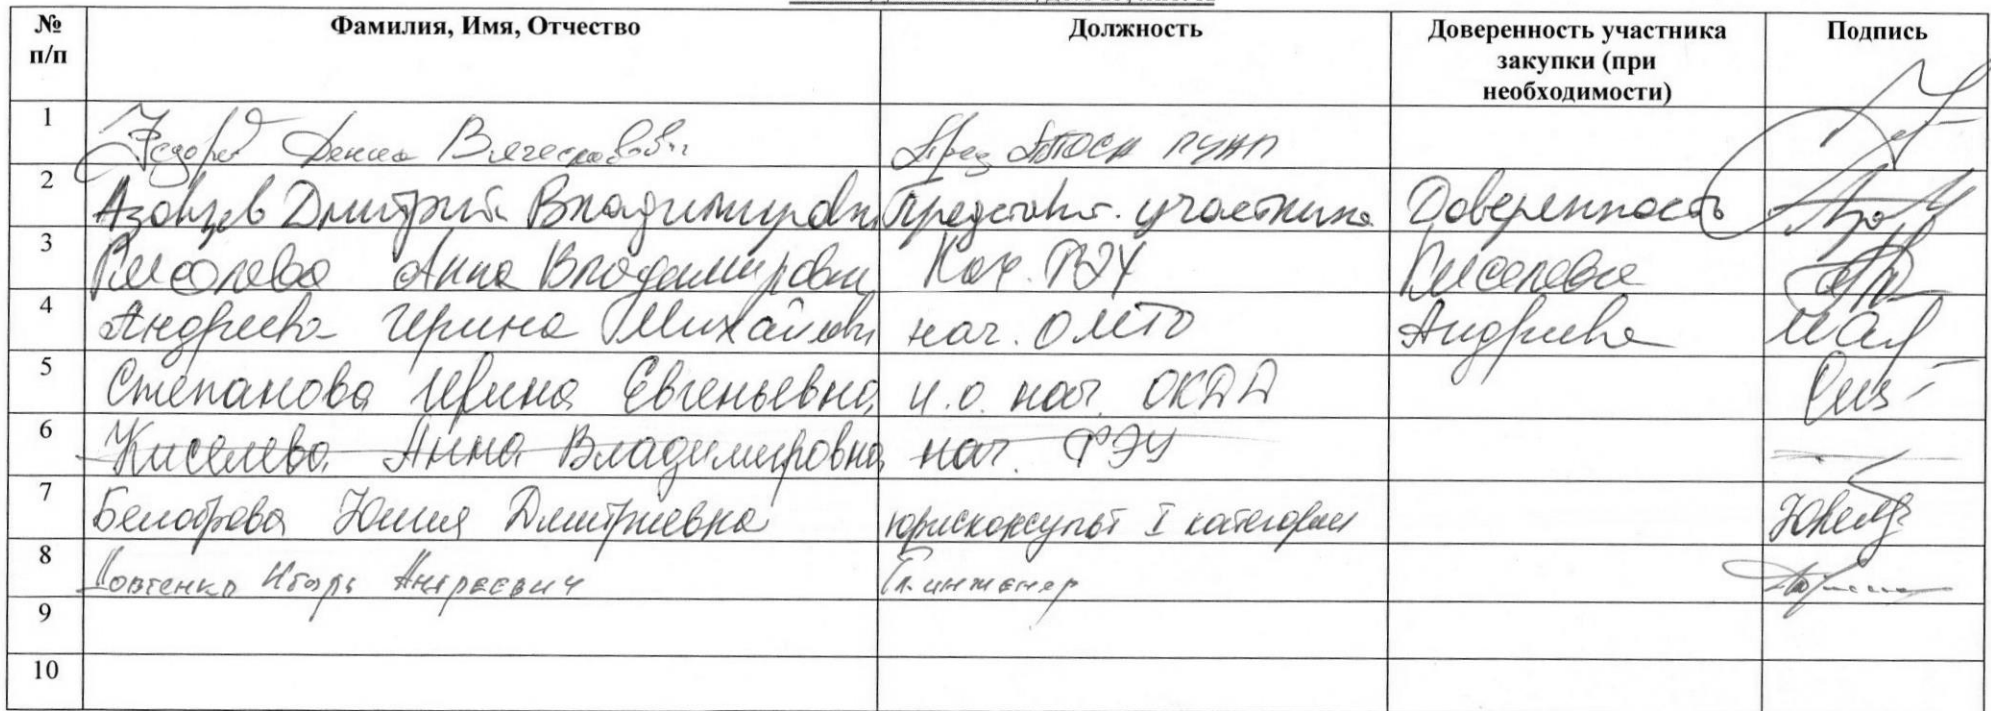 № п/п Фамилия, Имя, Отчество Должность Доверенность участника закупки (при необходимости) Подпись
1 Вячеславович
2 Азовцев Дмитрий Владимирович Представит. участника Доверенность
3 Киселева Анна Владимировна Нач. ФЭУ Киселева
4 Андреева Ирина Михайловна нач. ОМТО Андреева
5 Степанова Ирина Евгеньевна и.о. нач. ОКДД
6 Киселева Анна Владимировна нач. ФЭУ
7 Юлия Дмитриевна юрисконсульт I категории
8 Игорь Андреевич Гл. инженер
9
10